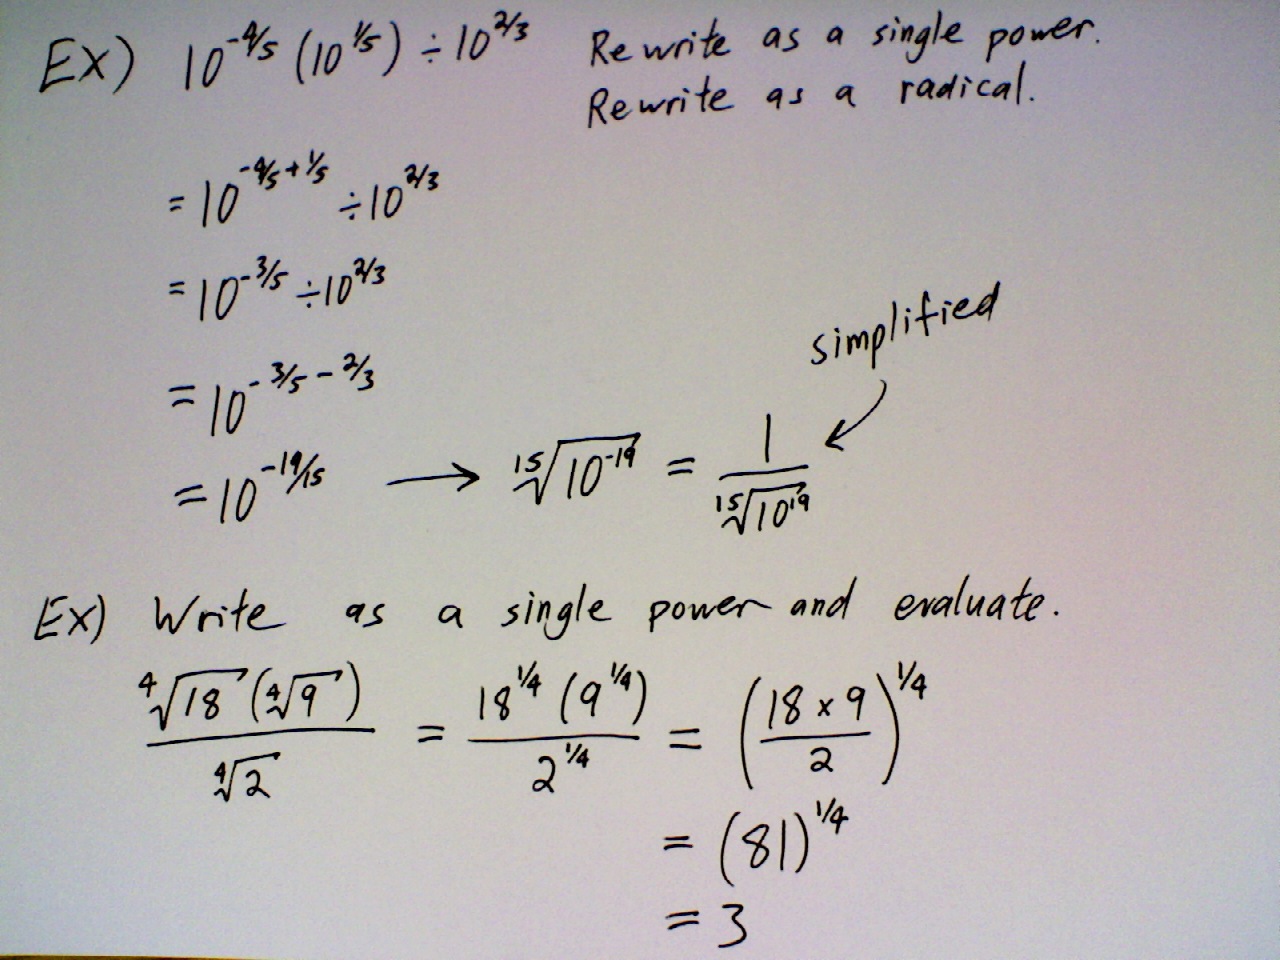 Ex) 10^(-4/5) (10^(1/5)) ÷ 10^(2/3) Rewrite as a single power.
Rewrite as a radical.
= 10^(-4/5 + 1/5) ÷ 10^(2/3)
= 10^(-3/5) ÷ 10^(2/3)
simplified
= 10^(-3/5 - 2/3)
= 10^(-19/15) → ¹⁵√(10^(-19)) = 1/(¹⁵√(10^19))
Ex) Write as a single power and evaluate.
(⁴√18 (⁴√9))/(⁴√2) = (18^(1/4) (9^(1/4)))/(2^(1/4)) = ((18 × 9)/2)^(1/4)
= (81)^(1/4)
= 3